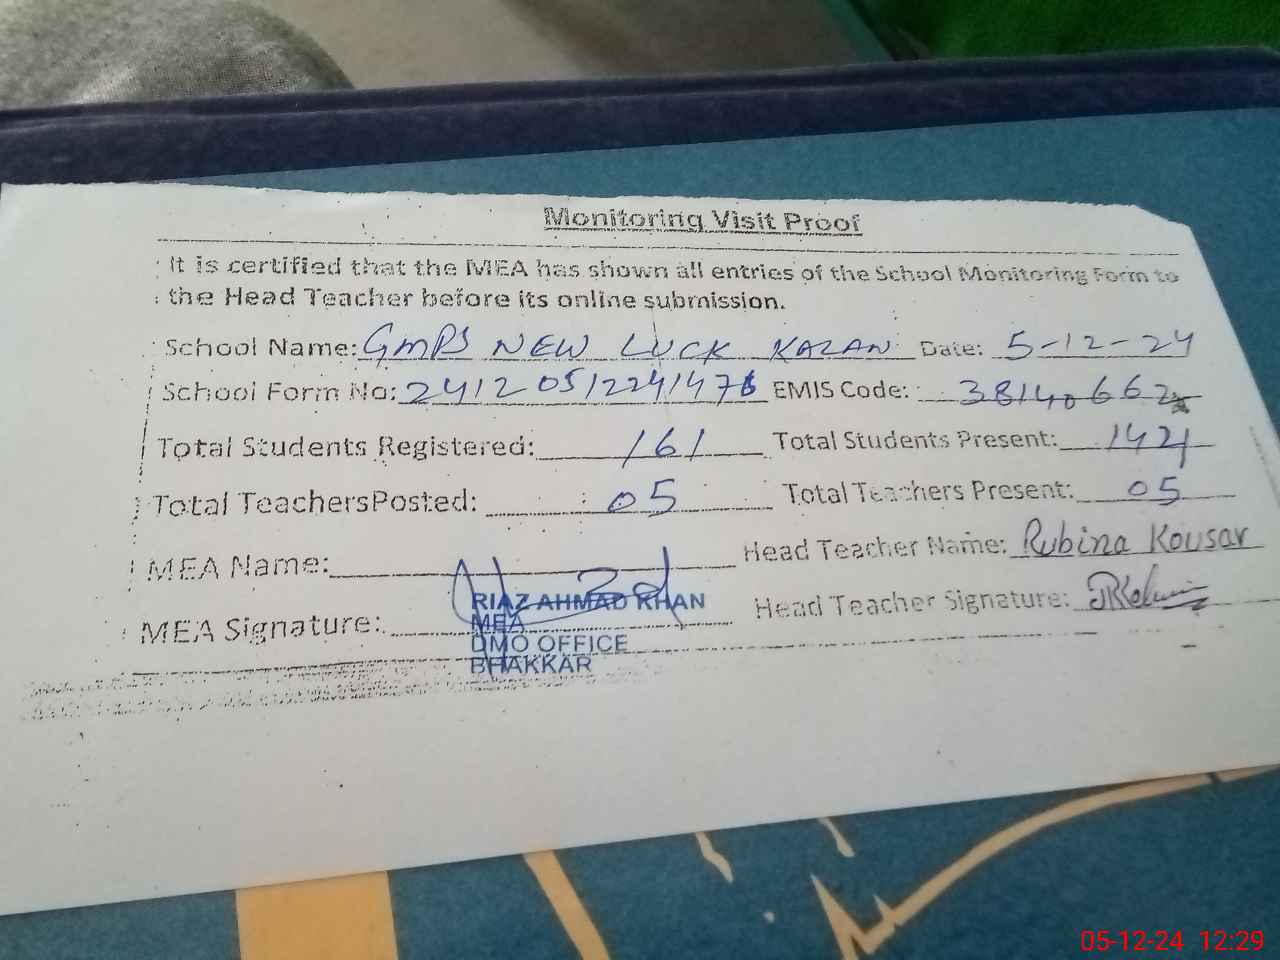 Monitoring Visit Proof
It is certified that the MEA has shown all entries of the School Monitoring Form to
the Head Teacher before its online submission.
School Name: GMPS NEW LUCK KALAN Date: 5-12-24
School Form No: EMIS Code:
Total Students Registered: 161 Total Students Present:
Total TeachersPosted: 05 Total Teachers Present: 05
MEA Name: Head Teacher Name: Rubina Kousar
MEA Signature: Head Teacher Signature:
RIAZ AHMAD KHAN
MEA
DMO OFFICE
BHAKKAR
05-12-24 12:29